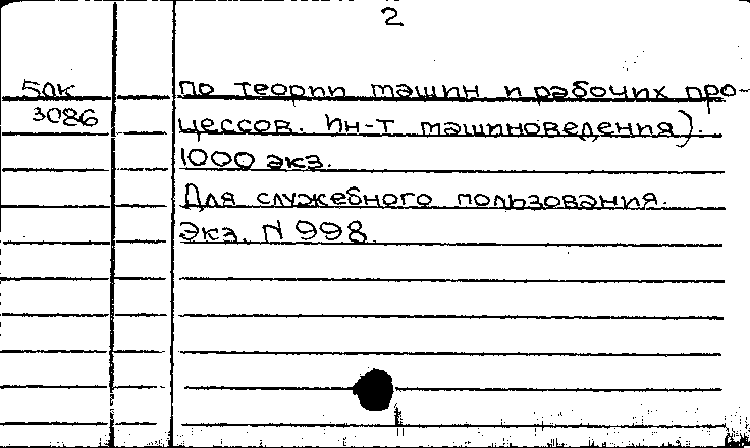 2
50к по теории машин и рабочих про-
3086 цессов. Ин-т машиноведения).
1000 экз.
Для служебного пользования.
Экз. N 998.